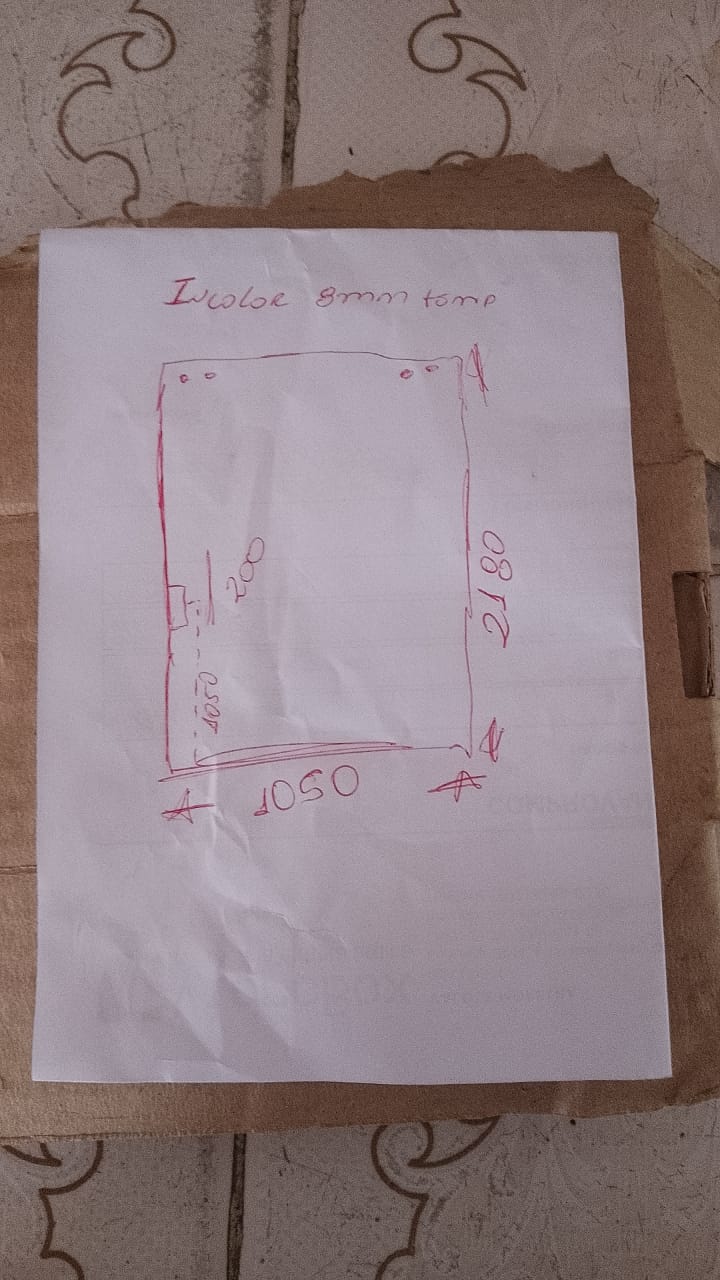 Incolor 8mm temp
200
2180
1050
1050